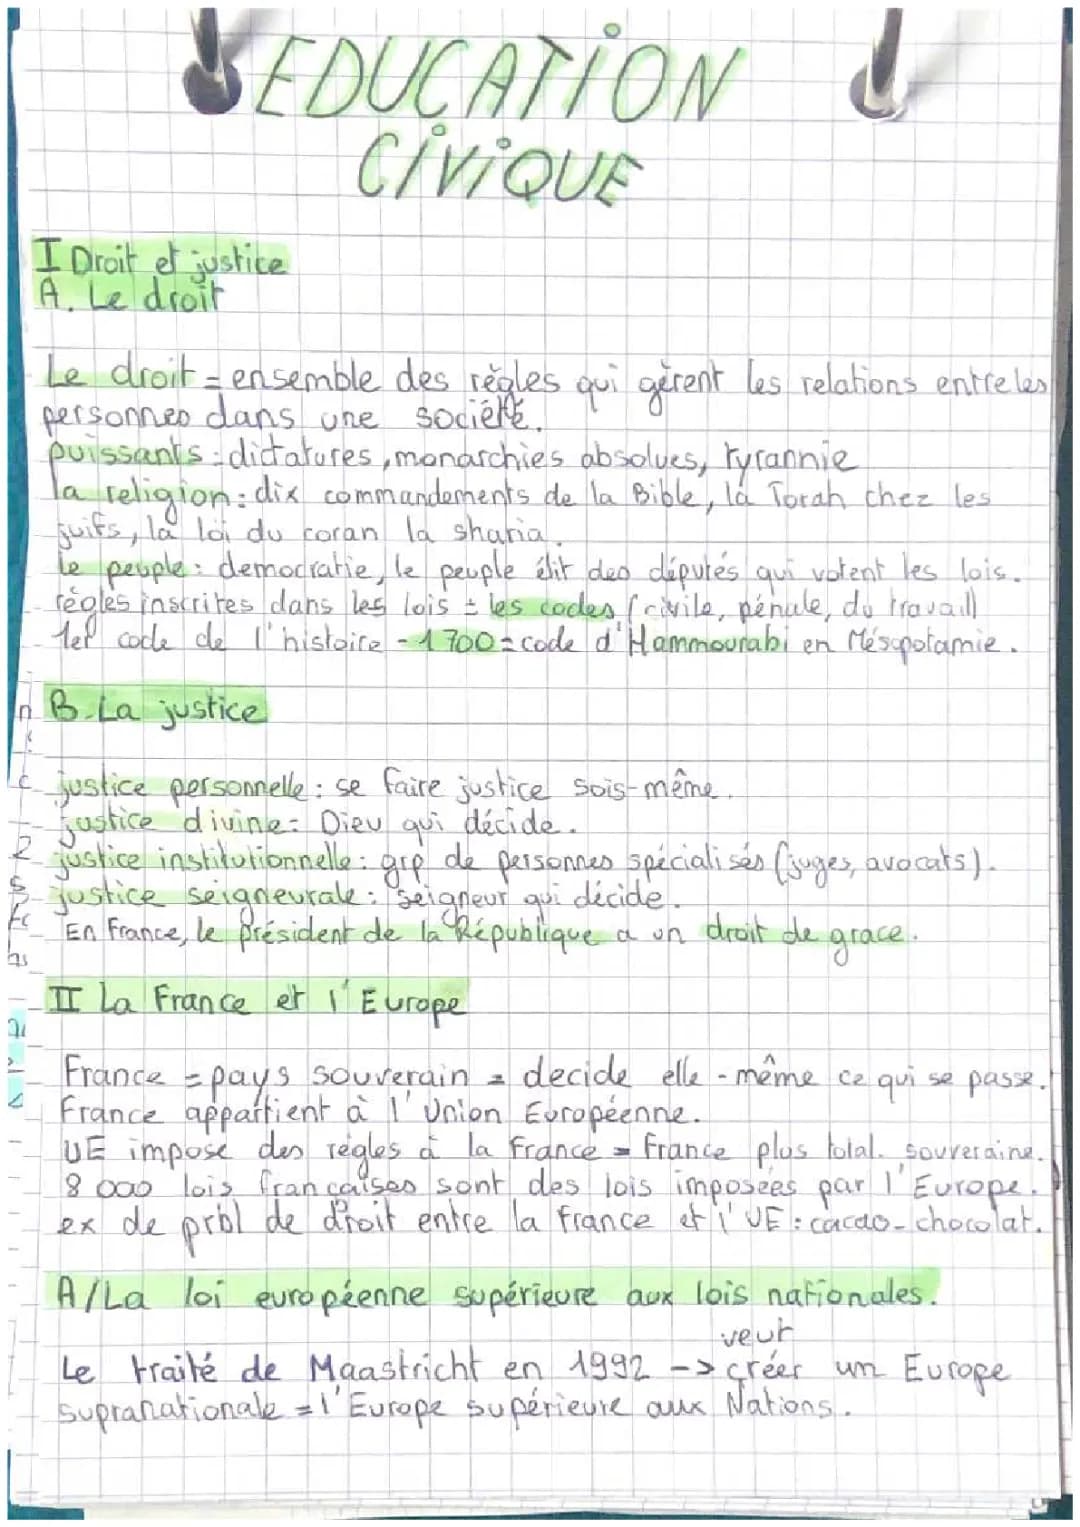 EDUCATION
CIVIQUE
I Droit et justice
A. Le droit
Le droit = ensemble des règles qui gèrent les relations entre les
personnes dans une société.
puissants : dictatures, monarchies absolues, tyrannie
la religion : dix commandements de la Bible, la Torah chez les
juifs, la loi du coran la sharia.
Le peuple : democratie, le peuple élit des députés qui votent les lois.
règles inscrites dans les lois = les codes (civile, pénale, du travail)
1er code de l'histoire -1700 = code d'Hammourabi en Mésopotamie.
B. La justice
justice personnelle : se faire justice sois-même.
justice divine : Dieu qui décide.
justice institutionnelle : grp de personnes spécialisés (juges, avocats).
justice seigneurale : seigneur qui décide.
En France, le président de la République a un droit de grace.
II La France et l'Europe
France = pays souverain = decide elle-même ce qui se passe.
France appartient à l'Union Européenne.
UE impose des règles à la France = France plus total. souveraine.
8 000 lois françaises sont des lois imposées par l'Europe.
ex de prbl de droit entre la France et l'UE : cacao-chocolat.
A/La loi européenne supérieure aux lois nationales.
veut
Le traité de Maastricht en 1992 -> créer un Europe
supranationale = l'Europe supérieure aux Nations.